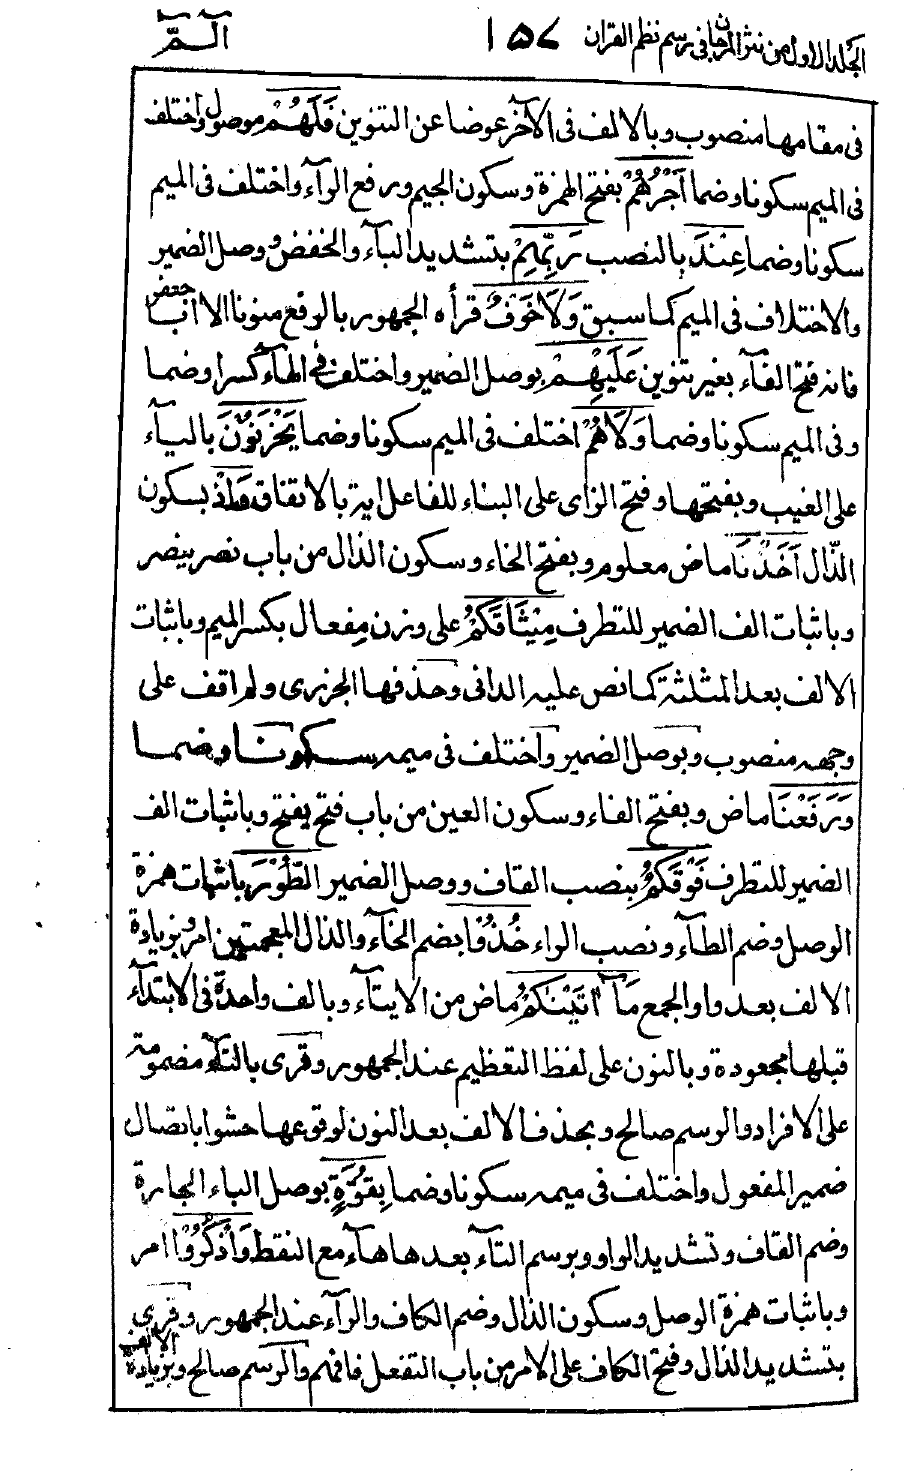 الجلد الاول من نثر المرجان فى رسم نظم القران ١٥٧ الٓمّٓ
فى مقامها منصوب وبالالف فى الآخر عوضا عن التنوين فَلَهُمْ موصول واختلف
فى الميم سكونا وضما اَجْرُهُمْ بفتح الهمزة وسكون الجيم ورفع الراء واختلف فى الميم
سكونا وضما عِنْدَ بالنصب رَبِّهِمْ بتشديد الباء والخفض ووصل الضمير
والاختلاف فى الميم كما سبق وَلَا خَوْفٌ قرأه الجمهور بالرفع منونا الا ابا جعفر
فانه فتح الفاء بغير تنوين عَلَيْهِمْ بوصل الضمير واختلف فى الهاء كسرا وضما
وفى الميم سكونا وضما وَلَا هُمْ اختلف فى الميم سكونا وضما يَحْزَنُوْنَ بالياء
على الغيب وبفتحها وفتح الزاى على البناء للفاعل اية بالاتفاق وَاِذْ بسكون
الذّال اَخَذْنَا ماض معلوم وبفتح الخاء وسكون الذال من باب نصر ينصر
وباثبات الف الضمير للتطرف مِيْثَاقَكُمْ على وزن مِفعال بكسر الميم وباثبات
الالف بعد المثلثة كما نص عليه الدانى وحذفها الجزرى ولم اقف على
وجهه منصوب وبوصل الضمير واختلف فى ميمه سكونا وضما
وَرَفَعْنَا ماض وبفتح الفاء وسكون العين من باب فتح يفتح وباثبات الف
الضمير للتطرف فَوْقَكُمُ بنصب القاف ووصل الضمير الطُّوْرَ باثبات همزة
الوصل وضم الطاء ونصب الراء خُذُوْا بضم الخاء والذال المعجمتين امر وبزيادة
الالف بعد واو الجمع مَآ اٰتَيْنٰكُمْ ماض من الايتاء وبالف واحدة فى الابتداء
قبلها مجعودة وبالنون على لفظ التعظيم عند الجمهور وقرى بالتاء مضمومة
على الافراد والرسم صالح وبحذف الالف بعد النون لوقوعها حشوا باتصال
ضمير المفعول واختلف فى ميمه سكونا وضما بِقُوَّةٍ بوصل الباء الجارة
وضم القاف وتشديد الواو وبرسم التاء بعدها هاء مع النقط وَاذْكُرُوْا امر
وباثبات همزة الوصل وسكون الذال وضم الكاف والراء عند الجمهور وقرى
بتشديد الذال وفتح الكاف على الامر من باب التفعل فافهم والرسم صالح وبزيادة الالف